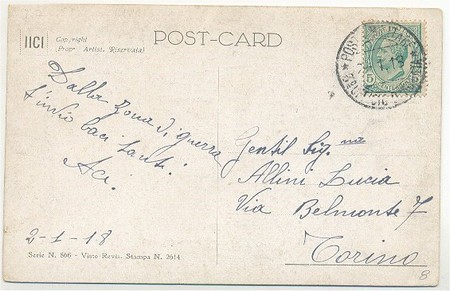 IICI
Copyright
(Propr. Artist. Riservata)
POST-CARD
5
Dalla zona di guerra
t'invio baci tanti
Aci.
2-1-18
Gentil Sig.na
Allini Lucia
Via Belmonte 7
Torino
Serie N. 866 - Visto Revis. Stampa N. 2614
8